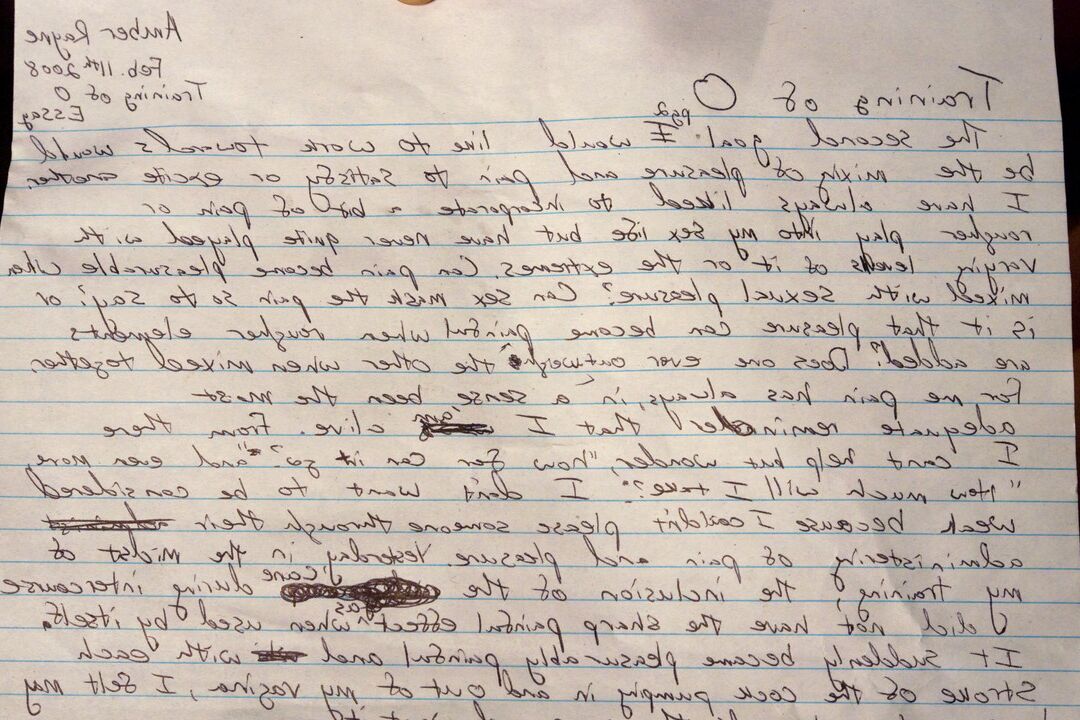 Amber Rayne
Feb. 11th 2008
Training of O
Essay
Training of O
pg 2
The second goal I would like to work towards would
be the mixing of pleasure and pain to satisfy or excite another.
I have always liked to incorporate a bit of pain or
rougher play into my sex life but have never quite played with
varying levels of it or the extremes. Can pain become pleasurable when
mixed with sexual pleasure? Can sex mask the pain so to say? or
is it that pleasure can become painful when rougher elements
are added? Does one ever outweigh the other when mixed together.
For me pain has always, in a sense been the most
adequate reminder that I am alive. From there
I cant help but wonder, "how far can it go?" and even more,
"How much will I take?" I don't want to be considered
weak because I couldn't please someone through their
administering of pain and pleasure. Yesterday in the midst of
my training the inclusion of the cane during intercourse
did not have the sharp painful effect as when used by itself.
It suddenly became pleasurably painful and with each
stroke of the cock pumping in and out of my vagina, I felt my